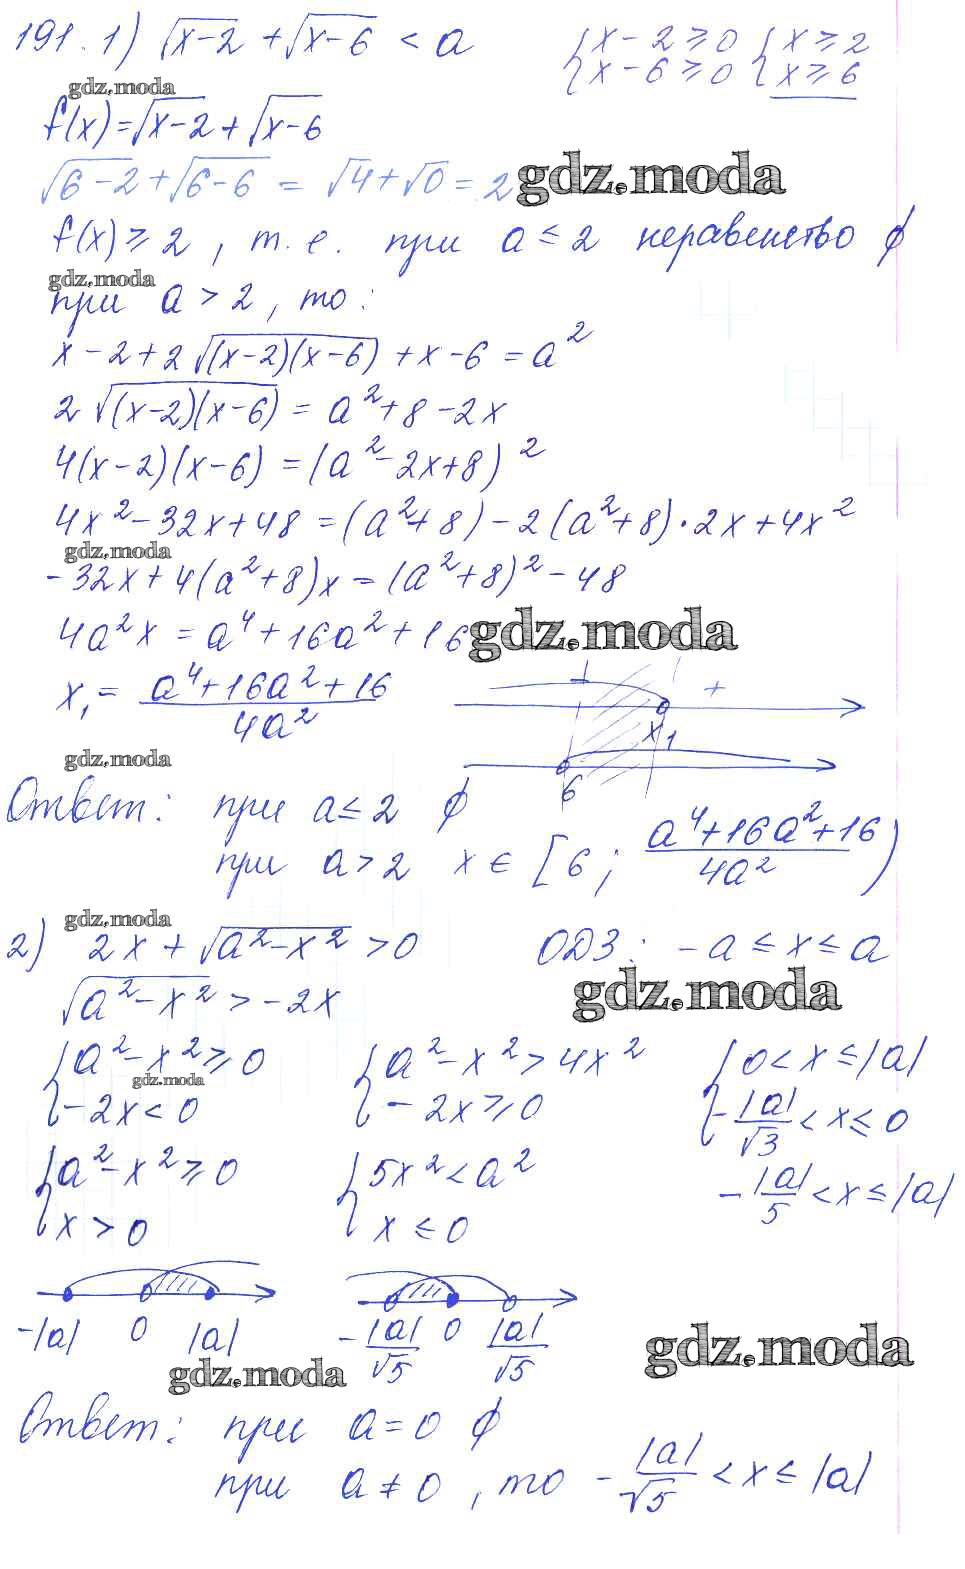 191. 1) √(x-2) + √(x-6) < a { x-2 ≥ 0 { x ≥ 2
{ x-6 ≥ 0 { x ≥ 6
gdz.moda
f(x) = √(x-2) + √(x-6)
√(6-2) + √(6-6) = √4 + √0 = 2 gdz.moda
f(x) ≥ 2, т. е. при a ≤ 2 неравенство ∅
gdz.moda
при a > 2, то:
x - 2 + 2√((x-2)(x-6)) + x - 6 = a²
2√((x-2)(x-6)) = a² + 8 - 2x
4(x-2)(x-6) = (a² - 2x + 8)²
4x² - 32x + 48 = (a² + 8) - 2(a² + 8) · 2x + 4x²
gdz.moda
-32x + 4(a² + 8)x = (a² + 8)² - 48
4a²x = a⁴ + 16a² + 16 gdz.moda
x₁ = (a⁴ + 16a² + 16)/(4a²)
+
x₁
gdz.moda
6
Ответ: при a ≤ 2 ∅
при a > 2 x ∈ [6; (a⁴ + 16a² + 16)/(4a²))
gdz.moda
2) 2x + √(a² - x²) > 0 ОДЗ: -a ≤ x ≤ a
gdz.moda
√(a² - x²) > -2x
{ a² - x² ≥ 0 { a² - x² > 4x² { 0 < x ≤ |a|
gdz.moda
{ -2x < 0 { -2x ≥ 0 { -|a|/√3 < x ≤ 0
{ a² - x² ≥ 0 { 5x² < a² -|a|/5 < x ≤ |a|
{ x > 0 { x ≤ 0
-|a| 0 |a| -|a|/√5 0 |a|/√5
gdz.moda gdz.moda
Ответ: при a = 0 ∅
при a ≠ 0, то -|a|/√5 < x ≤ |a|